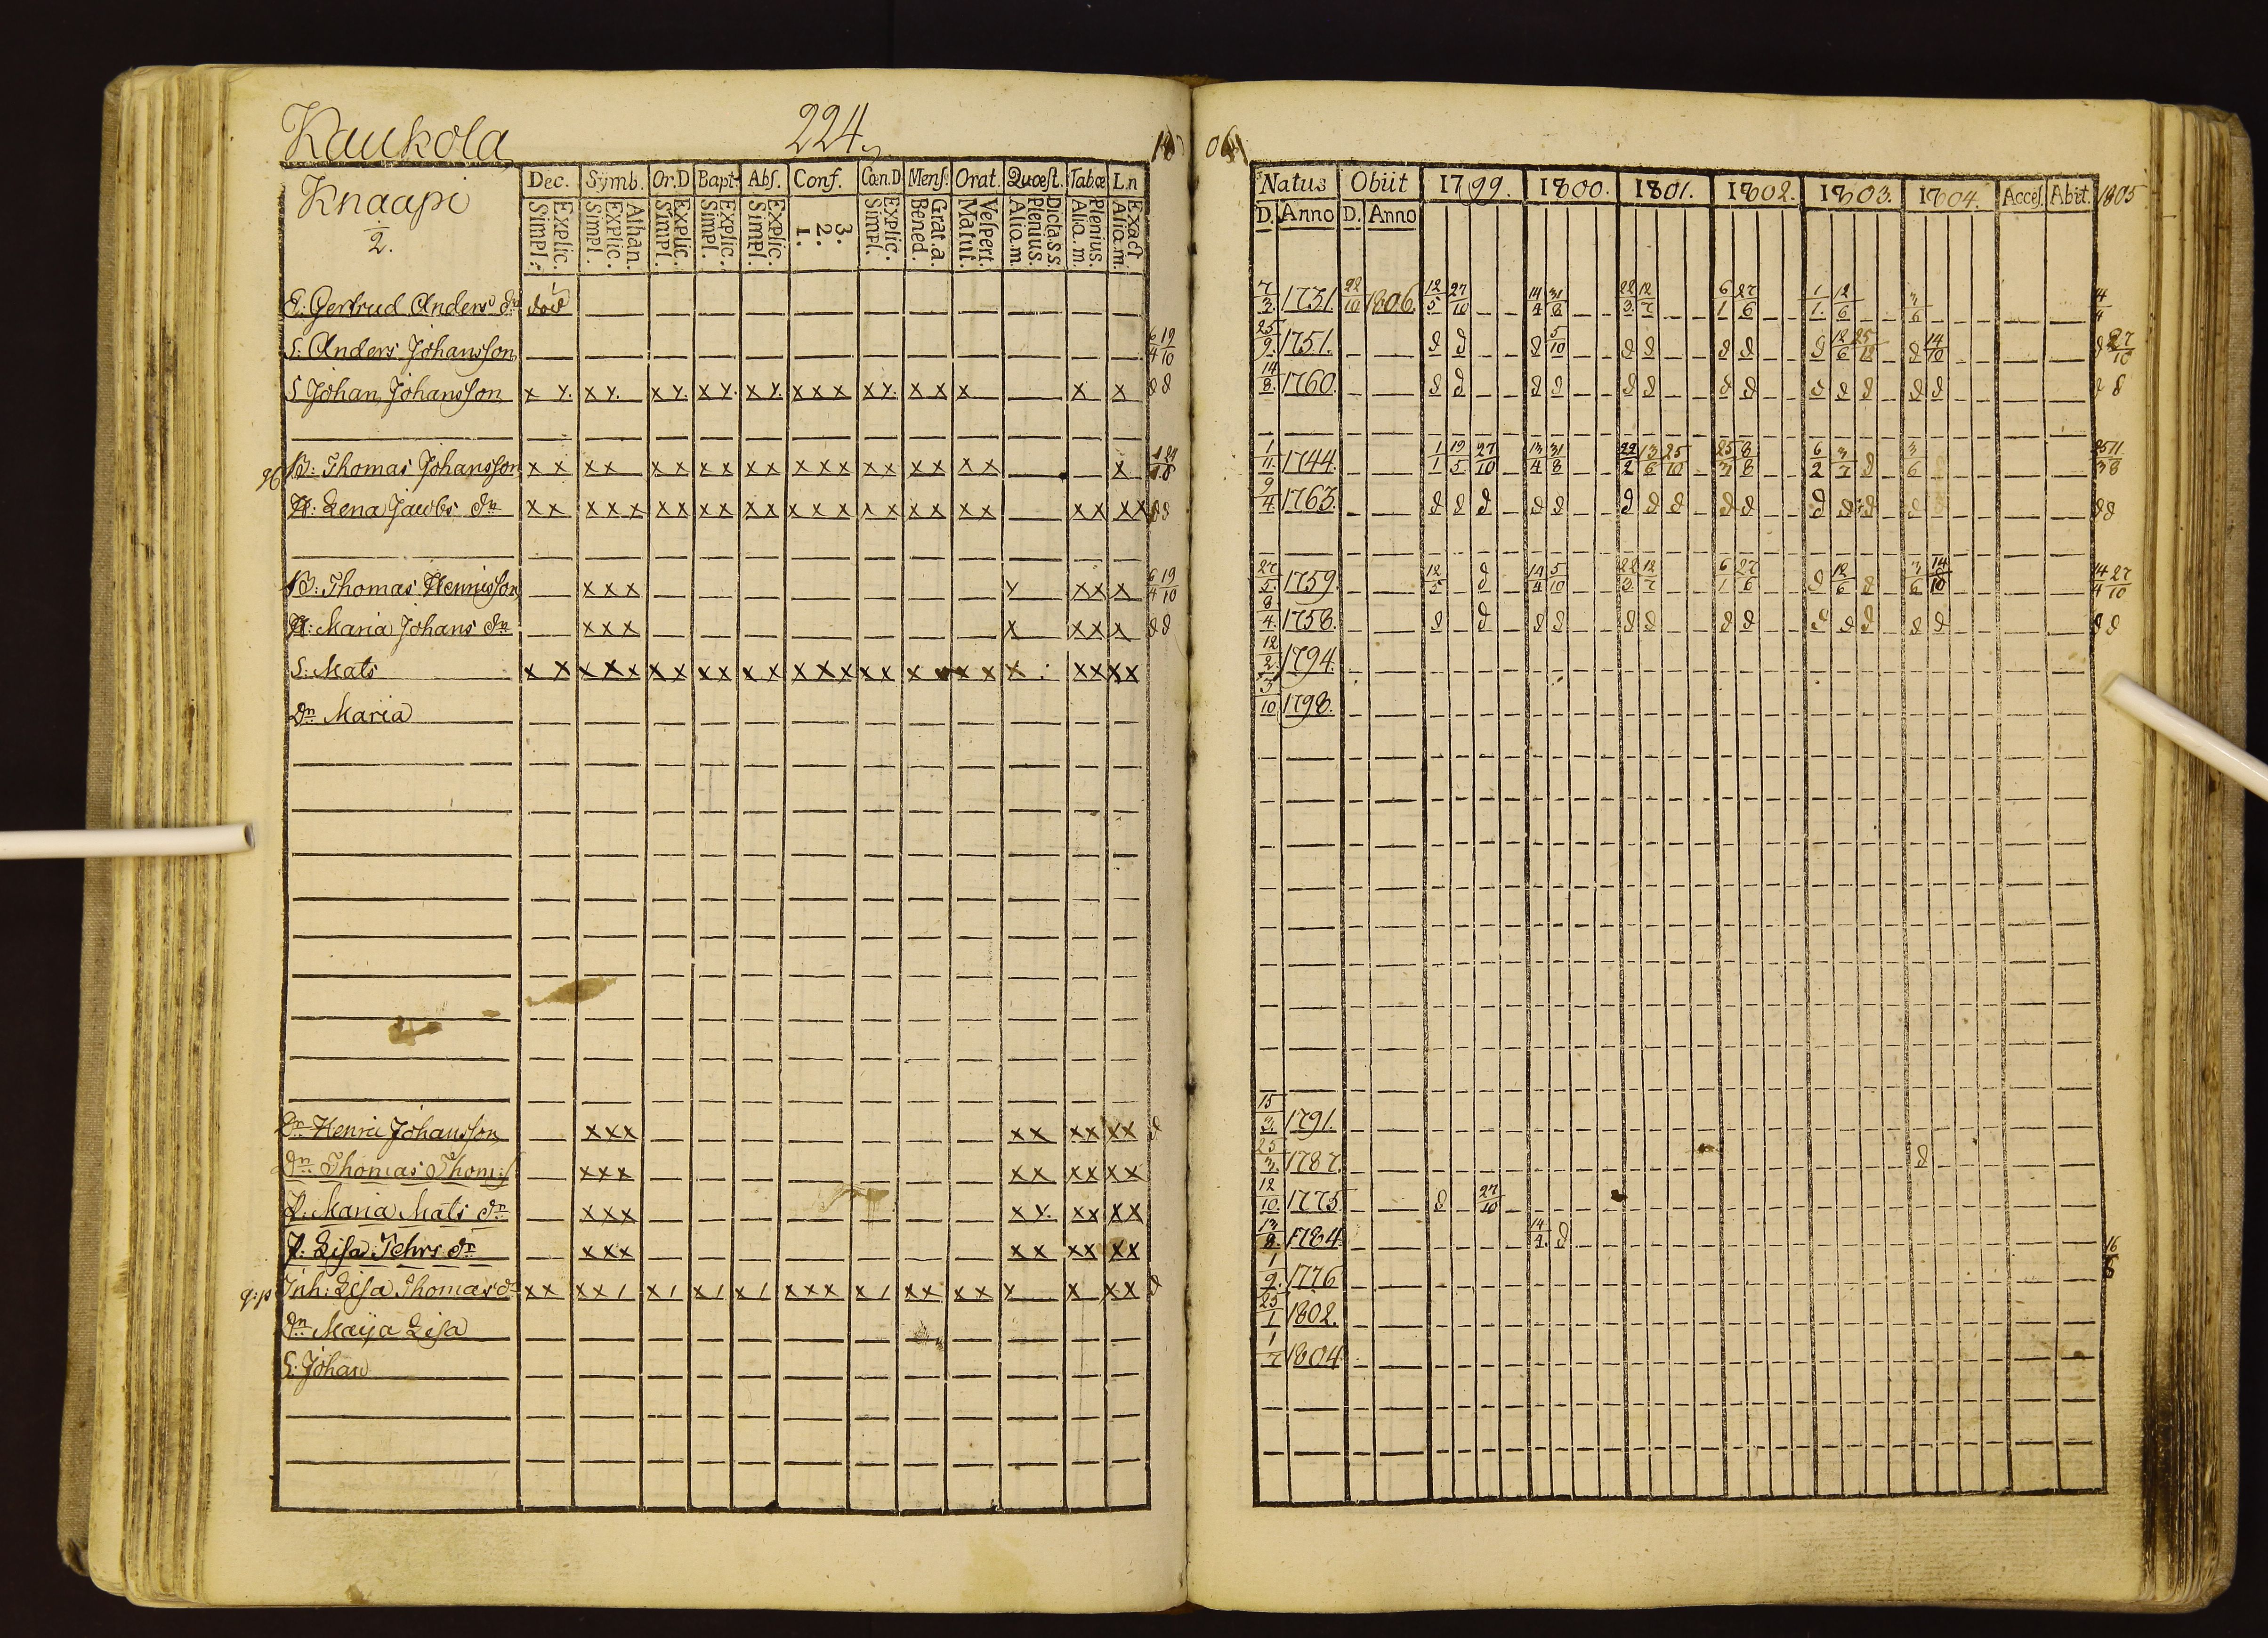 Kaukola 224
Knaapi
2.
Dec. Symb. Or.D Bapt. Abſ. Conf. Cœn.D Menſ. Orat. Quæſt. Tabæ L.n
Explic. Simpl. Athan. Explic. Simpl. Explic. Simpl. Explic. Simpl. Explic. Simpl. 3. 2. 1. Explic. Simpl. Grat.a. Bened. Veſpert. Matut. Dicta.s.s. Plenius. Alia.m. Plenius. Alia.m. Exact Alia.m.
Natus Obiit 1799. 1800. 1801. 1802. 1803. 1804. Acceſ. Abit. 1805
D. Anno D. Anno
E: Gertrud Anders dr död 7/3 1731. 22/10 1806. 12/5 27/10 14/4 31/8 22/3 12/7 6/1 27/6 1/1 12/6 3/6
S: Anders Johansson 6/4 19/10 25/9 1751. d d d 5/10 d d d d d 12/6 25/12 d 14/10 27/10
S Johan Johansson x y. x y. x y. x y. x y. x x x x y. x x x x x d d 14/8 1760. d d d d d d d d d d d d d
B: Thomas Johansson x x x x x x x x x x x x x x x x x x x x 1/11 1744. 1/1 12/5 27/10 13/4 31/8 22/2 13/6 25/10 25/3 8/8 6/2 3/7 d 3/6 25/3 11/8
H: Lena Jacobs dn x x x x x x x x x x x x x x x x x x x x x x x x 9/4 1763. d d d d d d d d d d d d d d d
B: Thomas Hennisson x x x y x x x 6/4 19/10 27/5 1759. 12/5 d 14/4 5/10 22/3 12/7 6/1 27/6 d 12/6 d 3/6 14/10 14/4 27/10
H: Maria Johans dn x x x x x x x d d 8/4 1758. d d d d d d d d d d d d d d d
S: Mats x x x x x x x x x x x x x x x x x x x x x x x x 12/2 1794.
Dn Maria 3/10 1798.
Dn Henric Johansson x x x x x x x x x d 15/3 1791.
Dn Thomas Thom:s x x x x x x x x x 25/3 1787. d
P. Maria Mats dn x x x x y. x x x x 12/10 1775. d 27/10
P: Lisa Tehrs dr x x x x x x x x x 13/8 1784. 14/4 d
Inh: Lisa Thomas d x x x x / x / x / x / x x x x / x x x x y x x x d 1/9 1776 16/8
dn Maija Lisa 25/1 1802.
S: Johan 1/7 1804